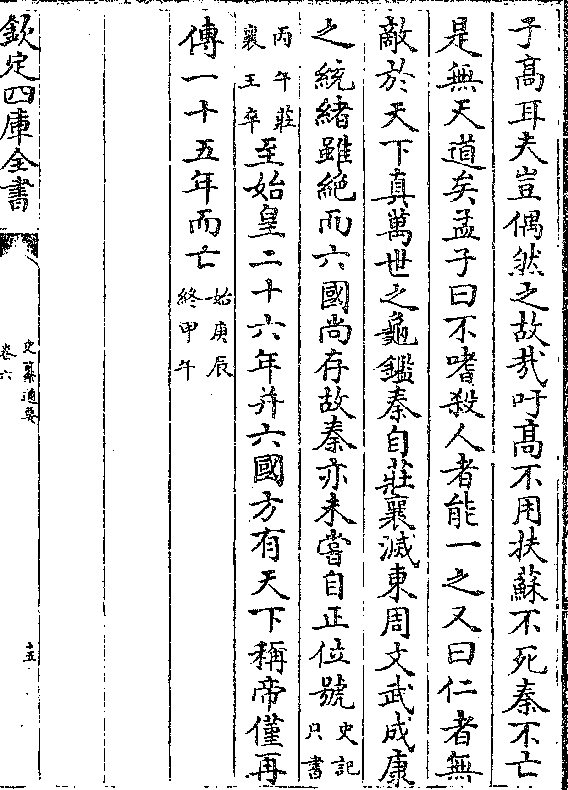 子高耳夫豈偶然之故哉吁高不用扶蘇不死秦不亡
是無天道矣孟子曰不嗜殺人者能一之又曰仁者無
敵於天下真萬世之龜鑑秦自莊襄滅東周文武成康
之統緒雖絶而六國尚存故秦亦未嘗自正位號史記只書
丙午莊襄王卒至始皇二十六年并六國方有天下稱帝僅再
傳一十五年而亡始庚辰終甲午
欽定四庫全書
史纂通要
卷六
十五